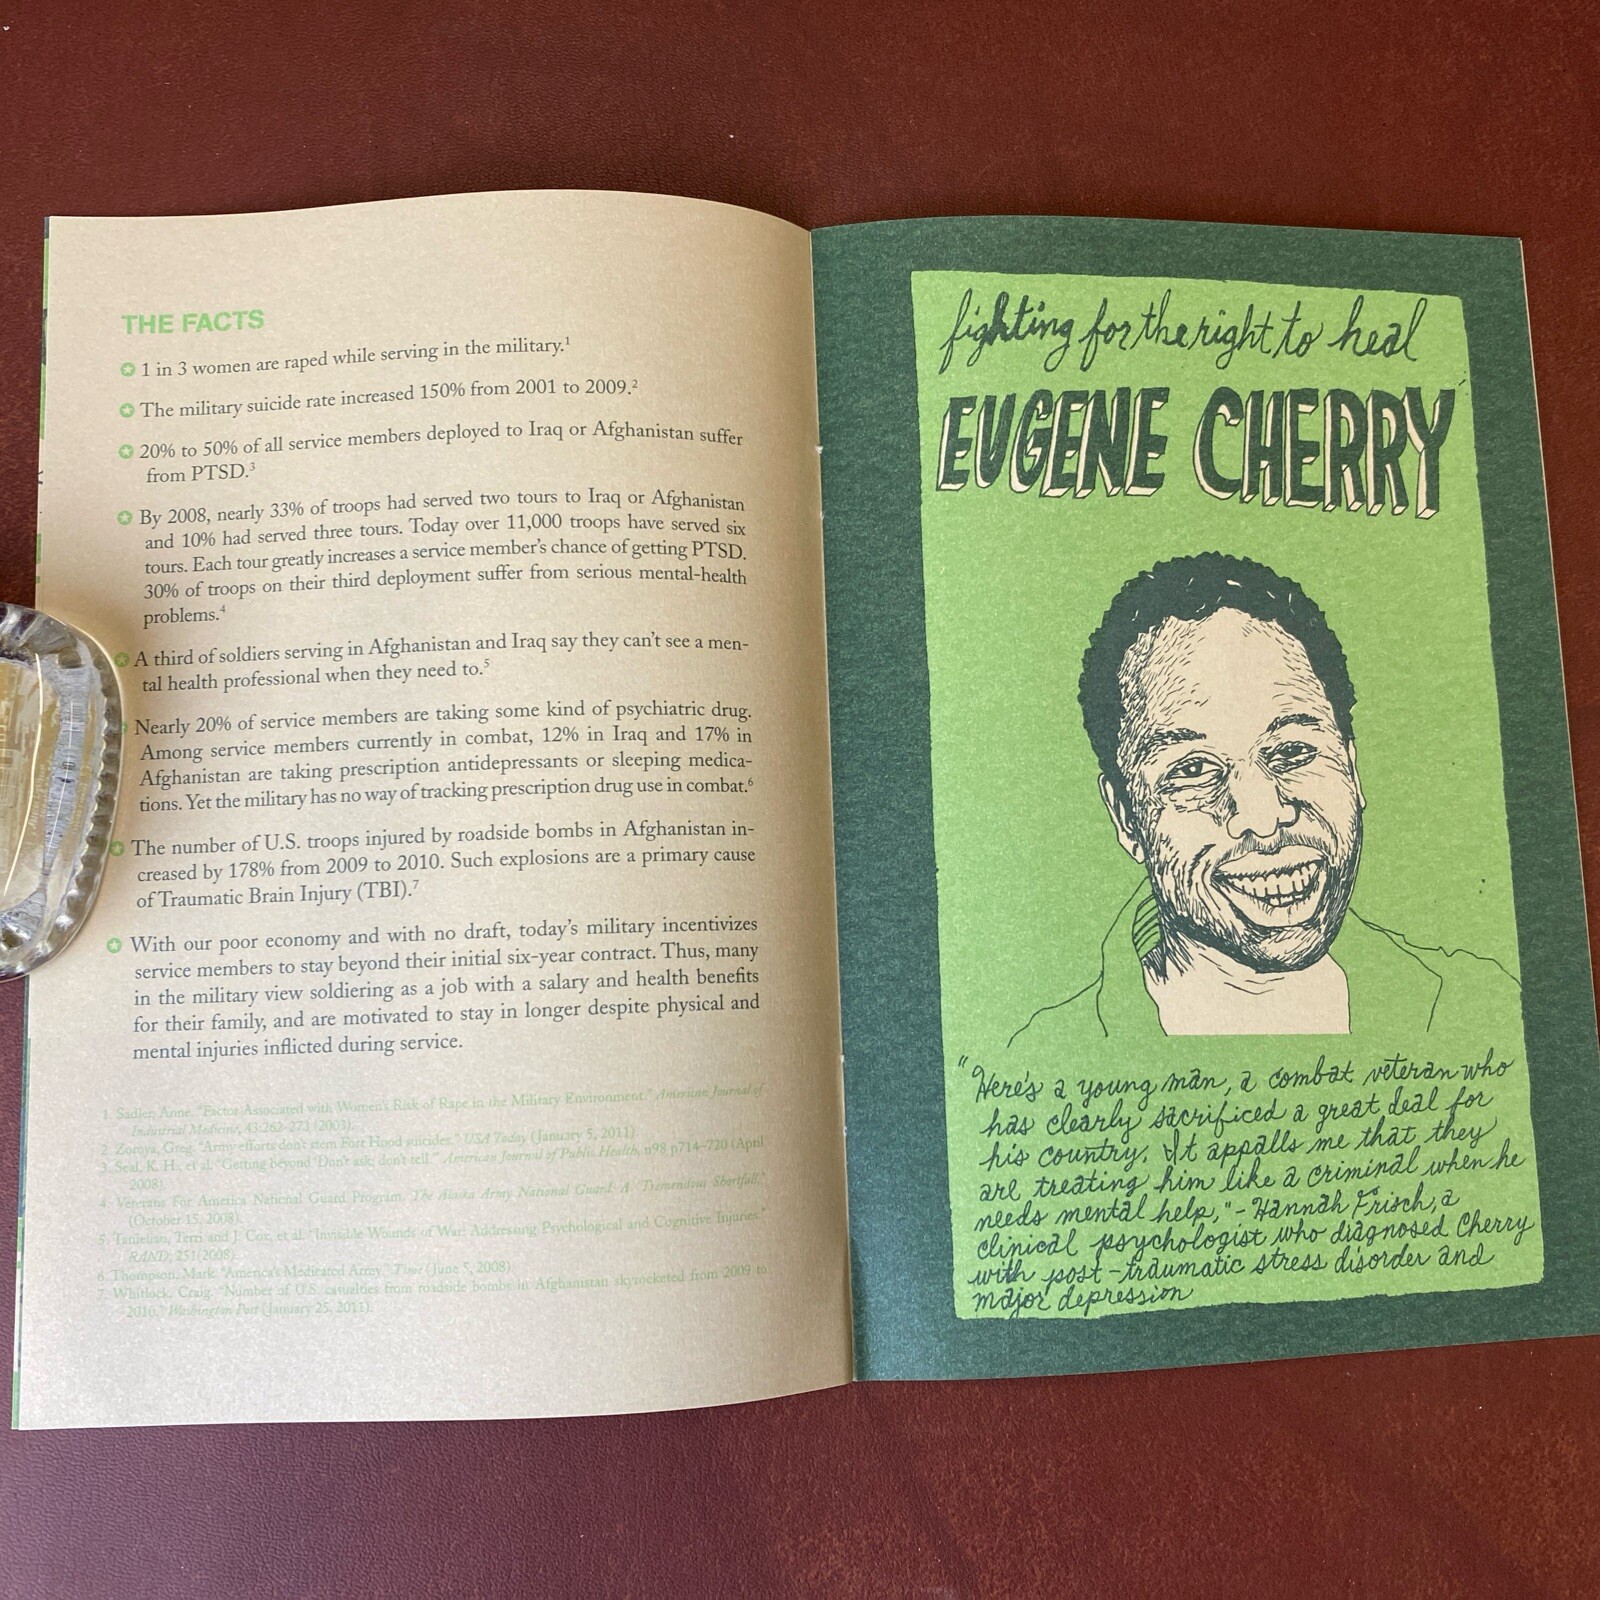 THE FACTS
1 in 3 women are raped while serving in the military.1
The military suicide rate increased 150% from 2001 to 2009.2
20% to 50% of all service members deployed to Iraq or Afghanistan suffer
from PTSD.3
By 2008, nearly 33% of troops had served two tours to Iraq or Afghanistan
and 10% had served three tours. Today over 11,000 troops have served six
tours. Each tour greatly increases a service member's chance of getting PTSD.
30% of troops on their third deployment suffer from serious mental-health
problems.4
A third of soldiers serving in Afghanistan and Iraq say they can't see a men-
tal health professional when they need to.5
Nearly 20% of service members are taking some kind of psychiatric drug.
Among service members currently in combat, 12% in Iraq and 17% in
Afghanistan are taking prescription antidepressants or sleeping medica-
tions. Yet the military has no way of tracking prescription drug use in combat.6
The number of U.S. troops injured by roadside bombs in Afghanistan in-
creased by 178% from 2009 to 2010. Such explosions are a primary cause
of Traumatic Brain Injury (TBI).7
With our poor economy and with no draft, today's military incentivizes
service members to stay beyond their initial six-year contract. Thus, many
in the military view soldiering as a job with a salary and health benefits
for their family, and are motivated to stay in longer despite physical and
mental injuries inflicted during service.
1. Sadler, Anne. "Factor Associated with Women's Risk of Rape in the Military Environment." American Journal of
Industrial Medicine, 43:262-273 (2003).
2. Zoroya, Greg. "Army efforts don't stem Fort Hood suicides." USA Today (January 5, 2011).
3. Seal, K. H., et al. "Getting beyond 'Don't ask; don't tell'." American Journal of Public Health, n98 p714–720 (April
2008).
4. Veterans For America National Guard Program. The Alaska Army National Guard: A "Tremendous Shortfall,"
(October 15, 2008).
5. Tanielian, Terri and J. Cox, et al. "Invisible Wounds of War: Addressing Psychological and Cognitive Injuries."
RAND, 251(2008).
6. Thompson, Mark. "America's Medicated Army." Time (June 5, 2008).
7. Whitlock, Craig. "Number of U.S. casualties from roadside bombs in Afghanistan skyrocketed from 2009 to
2010," Washington Post (January 25, 2011).
fighting for the right to heal
EUGENE CHERRY
"Here's a young man, a combat veteran who
has clearly sacrificed a great deal for
his country. It appalls me that they
are treating him like a criminal when he
needs mental help," - Hannah Frisch, a
clinical psychologist who diagnosed Cherry
with post-traumatic stress disorder and
major depression